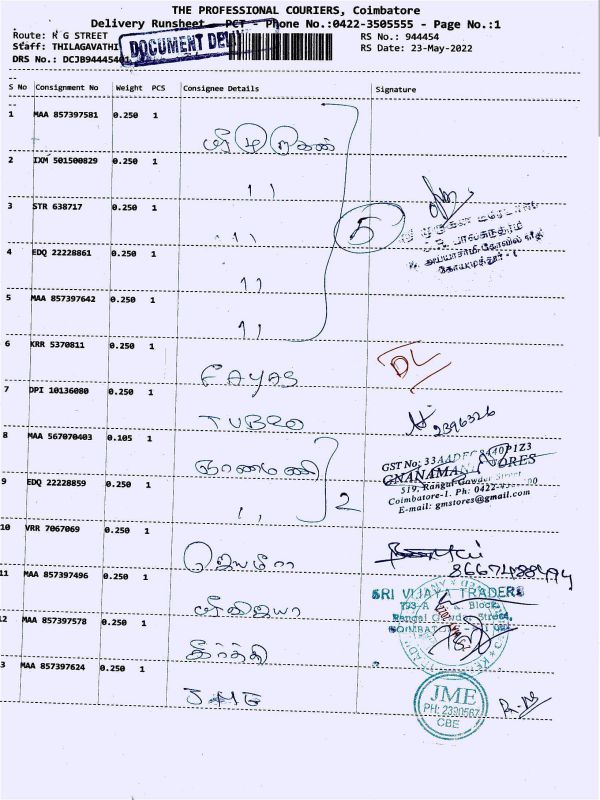 THE PROFESSIONAL COURIERS, Coimbatore
Delivery Runsheet - PCT - Phone No.:0422-3505555 - Page No.:1
Route: R G STREET RS No.: 944454
Staff: THILAGAVATHI RS Date: 23-May-2022
DOCUMENT DEL
DRS No.: DCJB94445401
S No Consignment No Weight PCS Consignee Details Signature
1 MAA 857397581 0.250 1
2 IXM 501500829 0.250 1
11
3 STR 638717 0.250 1
11
5
4 EDQ 22228861 0.250 1
11
கோயமுத்தூர் - 1
5 MAA 857397642 0.250 1
11
6 KRR 5370811 0.250 1
DL
FAYAS
7 DPI 10136080 0.250 1
TUBRO
2396326
8 MAA 567070403 0.105 1
ஞானமணி
GST No: 33AADFG8440P1Z3
GNANAMANI STORES
9 EDQ 22228859 0.250 1
519, Rangai Gowder Street
Coimbatore-1. Ph: 0422
E-mail: gmstores@gmail.com
11 2
10 VRR 7067069 0.250 1
ஜெயமீரா
8667488494
11 MAA 857397496 0.250 1
ஸ்ரீவிஜயா
SRI VIJAYA TRADERS
Block,
Rangai Gowder Street,
COIMBATORE
12 MAA 857397578 0.250 1
கீர்த்தி
3 MAA 857397624 0.250 1
JME
JME
PH: 2390567
CBE